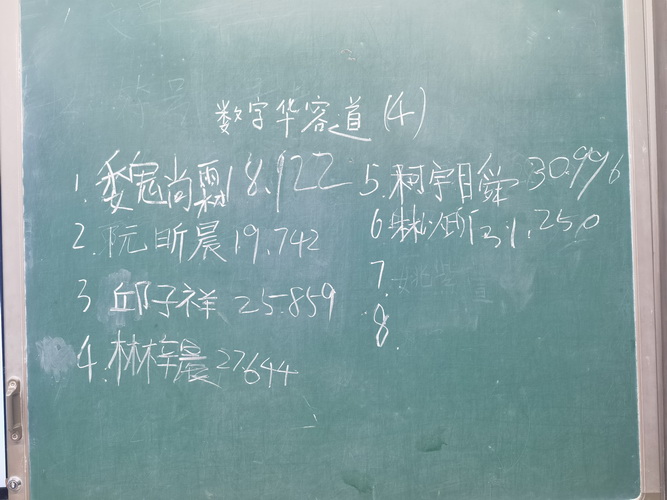 数字华容道(4)
1. 尚霖18.922
2. 阮昕晨19.742
3 邱子祥 25.859
4. 林梓晨27.644
5. 柯宇瞬 30.996
6 31.250
7
8.